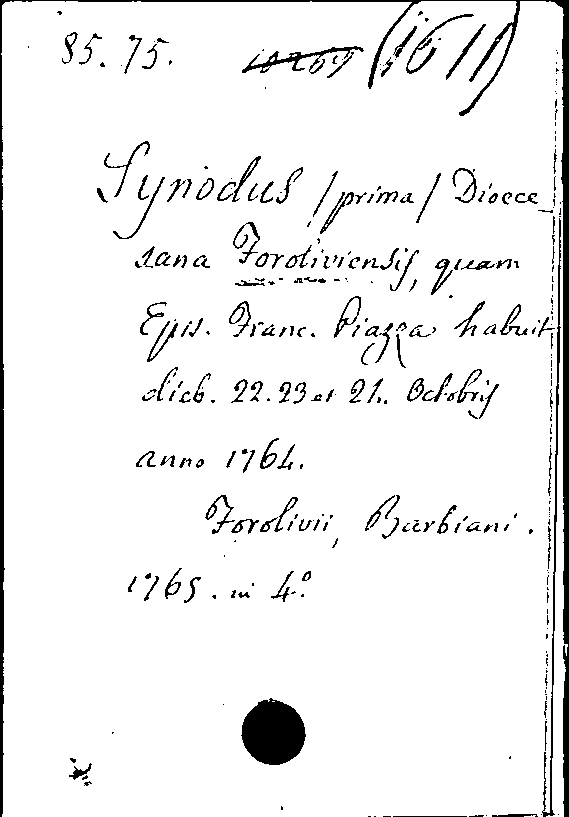 85.75. 10269 (1611)
Synodus /prima/ Dioece
sana Foroliviensis, quam
Epis. Franc. Piazza habuit
dieb. 22. 23 et 24. Octobris
anno 1764.
Forolivii, Barbiani.
1765. in 4.º